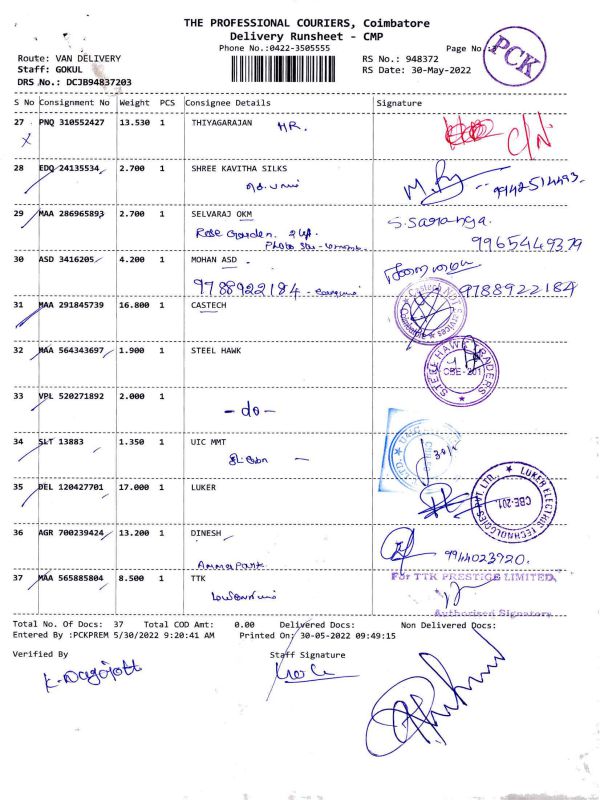 THE PROFESSIONAL COURIERS, Coimbatore
Delivery Runsheet - CMP
Phone No.:0422-3505555
Page No.:
PCK
Route: VAN DELIVERY
Staff: GOKUL
DRS No.: DCJB94837203
RS No.: 948372
RS Date: 30-May-2022
S No Consignment No Weight PCS Consignee Details Signature
27 PNQ 310552427 13.530 1 THIYAGARAJAN HR.
X
28 EDQ 24135534 2.700 1 SHREE KAVITHA SILKS
29 MAA 286965893 2.700 1 SELVARAJ OKM S. Saranga.
Rose Garden. 9965449379
30 ASD 3416205 4.200 1 MOHAN ASD
9788922184 9788922184
31 MAA 291845739 16.800 1 CASTECH
Castech NDT Services Coimbatore
32 MAA 564343697 1.900 1 STEEL HAWK
STEEL HAWK TRADERS CBE-201
33 VPL 520271892 2.000 1
- do -
34 SLT 13883 1.350 1 UIC MMT
35 DEL 120427701 17.000 1 LUKER
LUKER ELECTRIC TECHNOLOGIES PVT. LTD., CBE-201
36 AGR 700239424 13.200 1 DINESH
9944023920.
37 MAA 565885804 8.500 1 TTK
For TTK PRESTIGE LIMITED,
Authorised Signatory
Total No. Of Docs: 37 Total COD Amt: 0.00 Delivered Docs: Non Delivered Docs:
Entered By :PCKPREM 5/30/2022 9:20:41 AM Printed On: 30-05-2022 09:49:15
Verified By Staff Signature